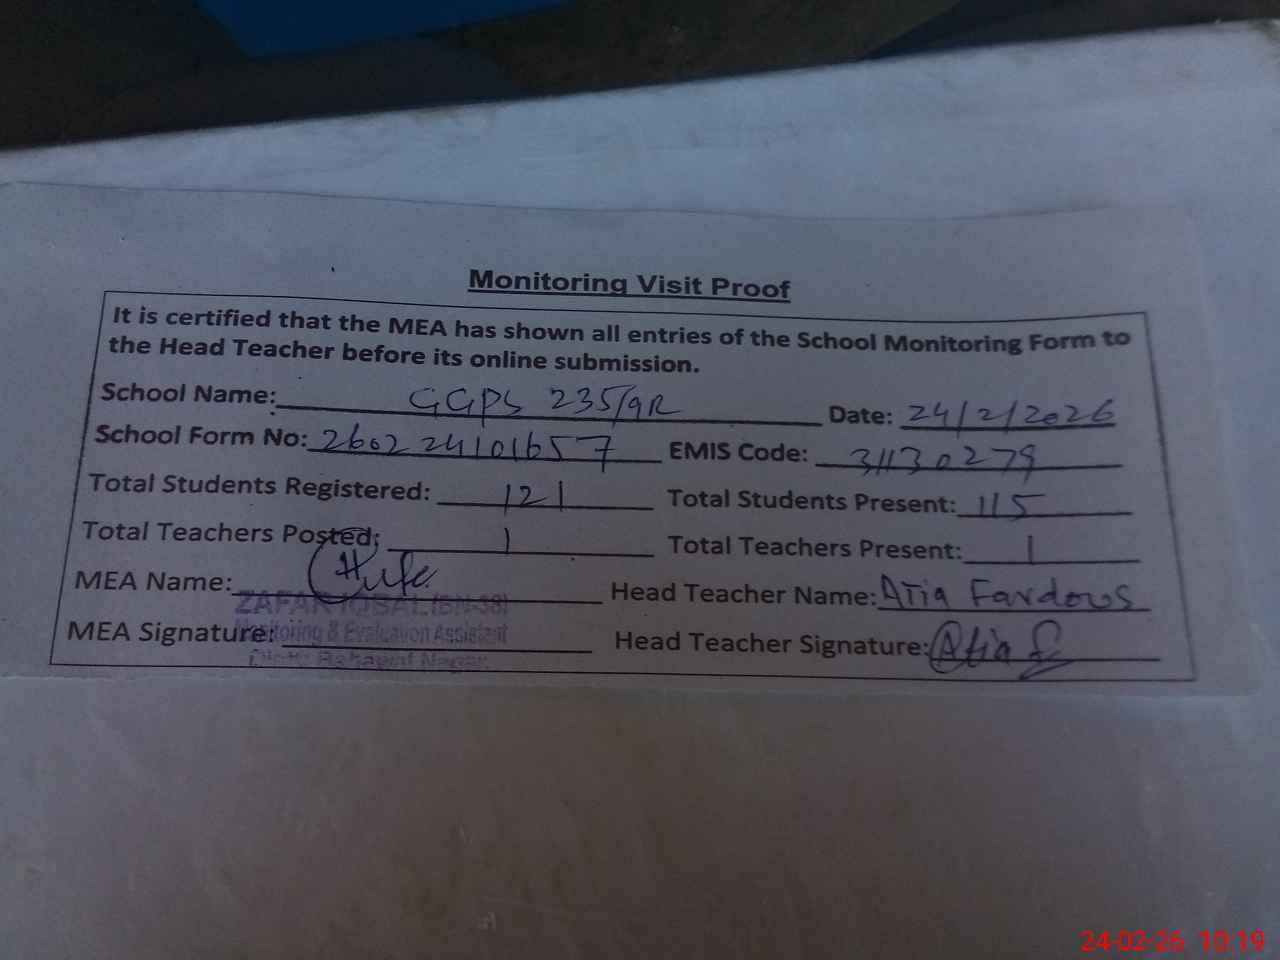 Monitoring Visit Proof
It is certified that the MEA has shown all entries of the School Monitoring Form to
the Head Teacher before its online submission.
School Name: GGPS 235/9R Date: 24/2/2026
School Form No: 260224101657 EMIS Code: 31130279
Total Students Registered: 121 Total Students Present: 115
Total Teachers Posted: 1 Total Teachers Present: 1
MEA Name: Head Teacher Name: Atia Fardows
ZAFAR IQBAL (BN-38)
MEA Signature: Monitoring & Evaluation Assistant Head Teacher Signature: Atia F
Distt: Bahawal Nagar
24-02-26 10:19